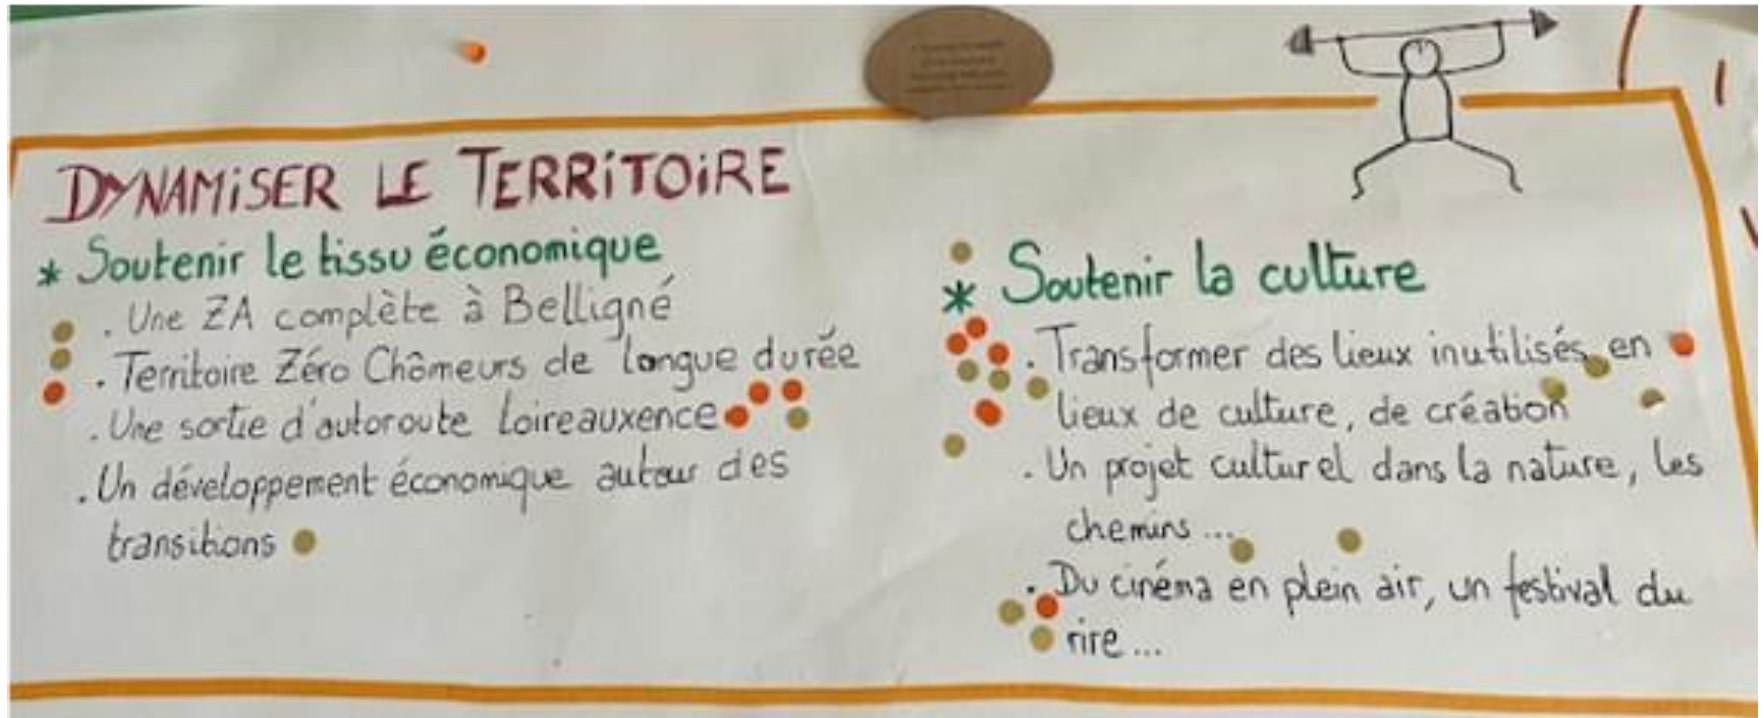 DYNAMiSER LE TERRiTOiRE
* Soutenir le tissu économique
. Une ZA complète à Belligné
. Territoire Zéro Chômeurs de longue durée
. Une sortie d'autoroute Loireauxence
. Un développement économique autour des
transitions
* Soutenir la culture
. Transformer des lieux inutilisés en
lieux de culture, de création
. Un projet culturel dans la nature, les
chemins ...
. Du cinéma en plein air, un festival du
rire ...